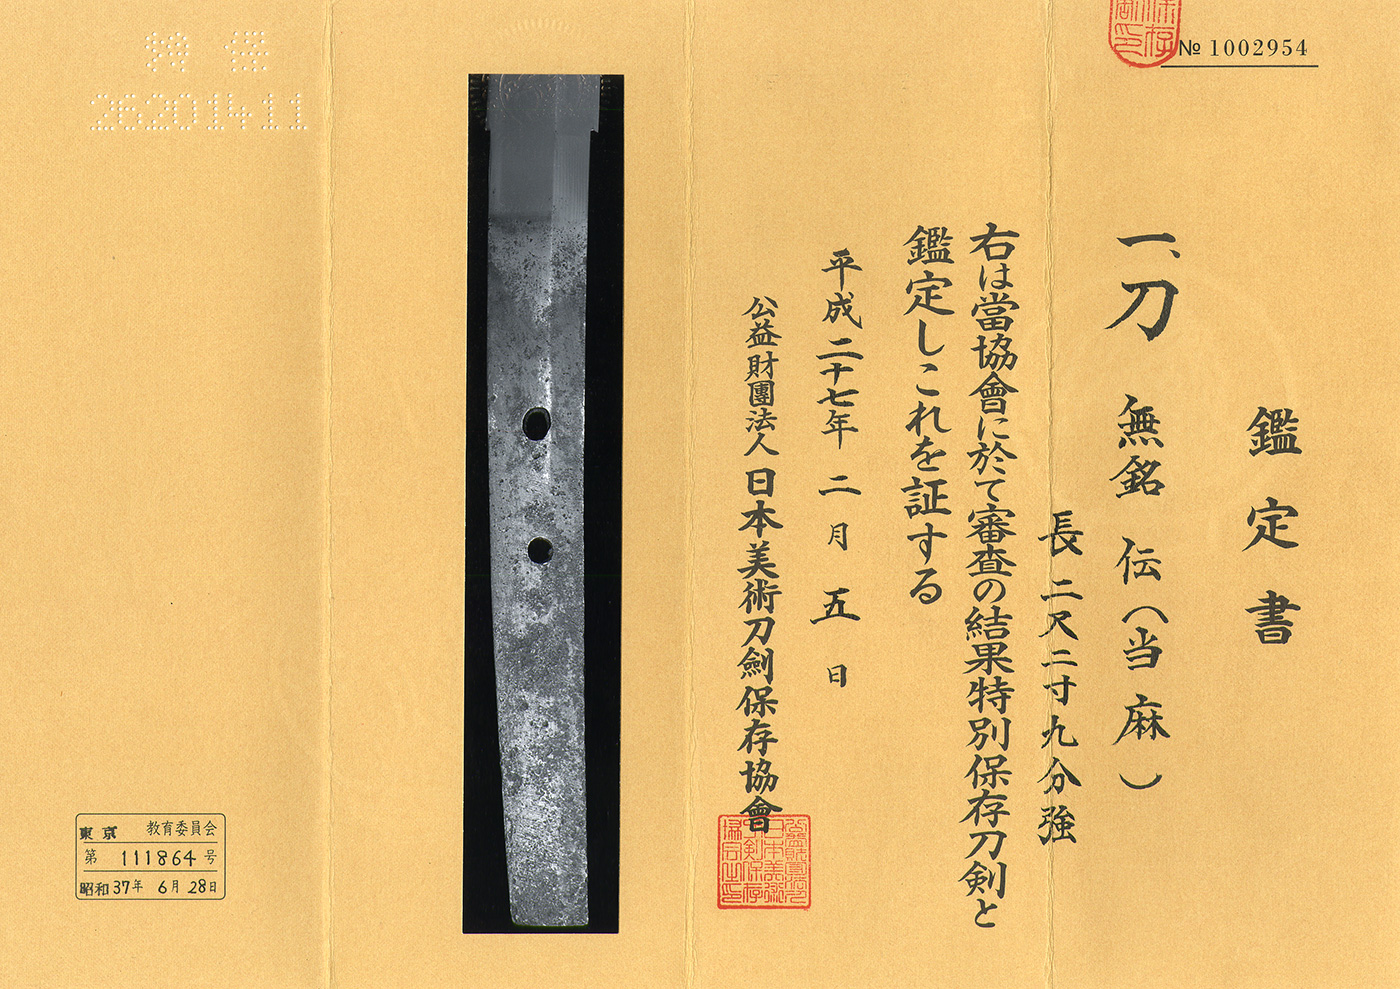 № 1002954
鑑定書
一、刀 無銘 伝(当麻)
長二尺二寸九分強
右は當協會に於て審査の結果特別保存刀剣と
鑑定しこれを証する
平成二十七年二月五日
公益財團法人日本美術刀劍保存協會
26201411
東京 教育委員会
第 111864 号
昭和37年 6月 28日